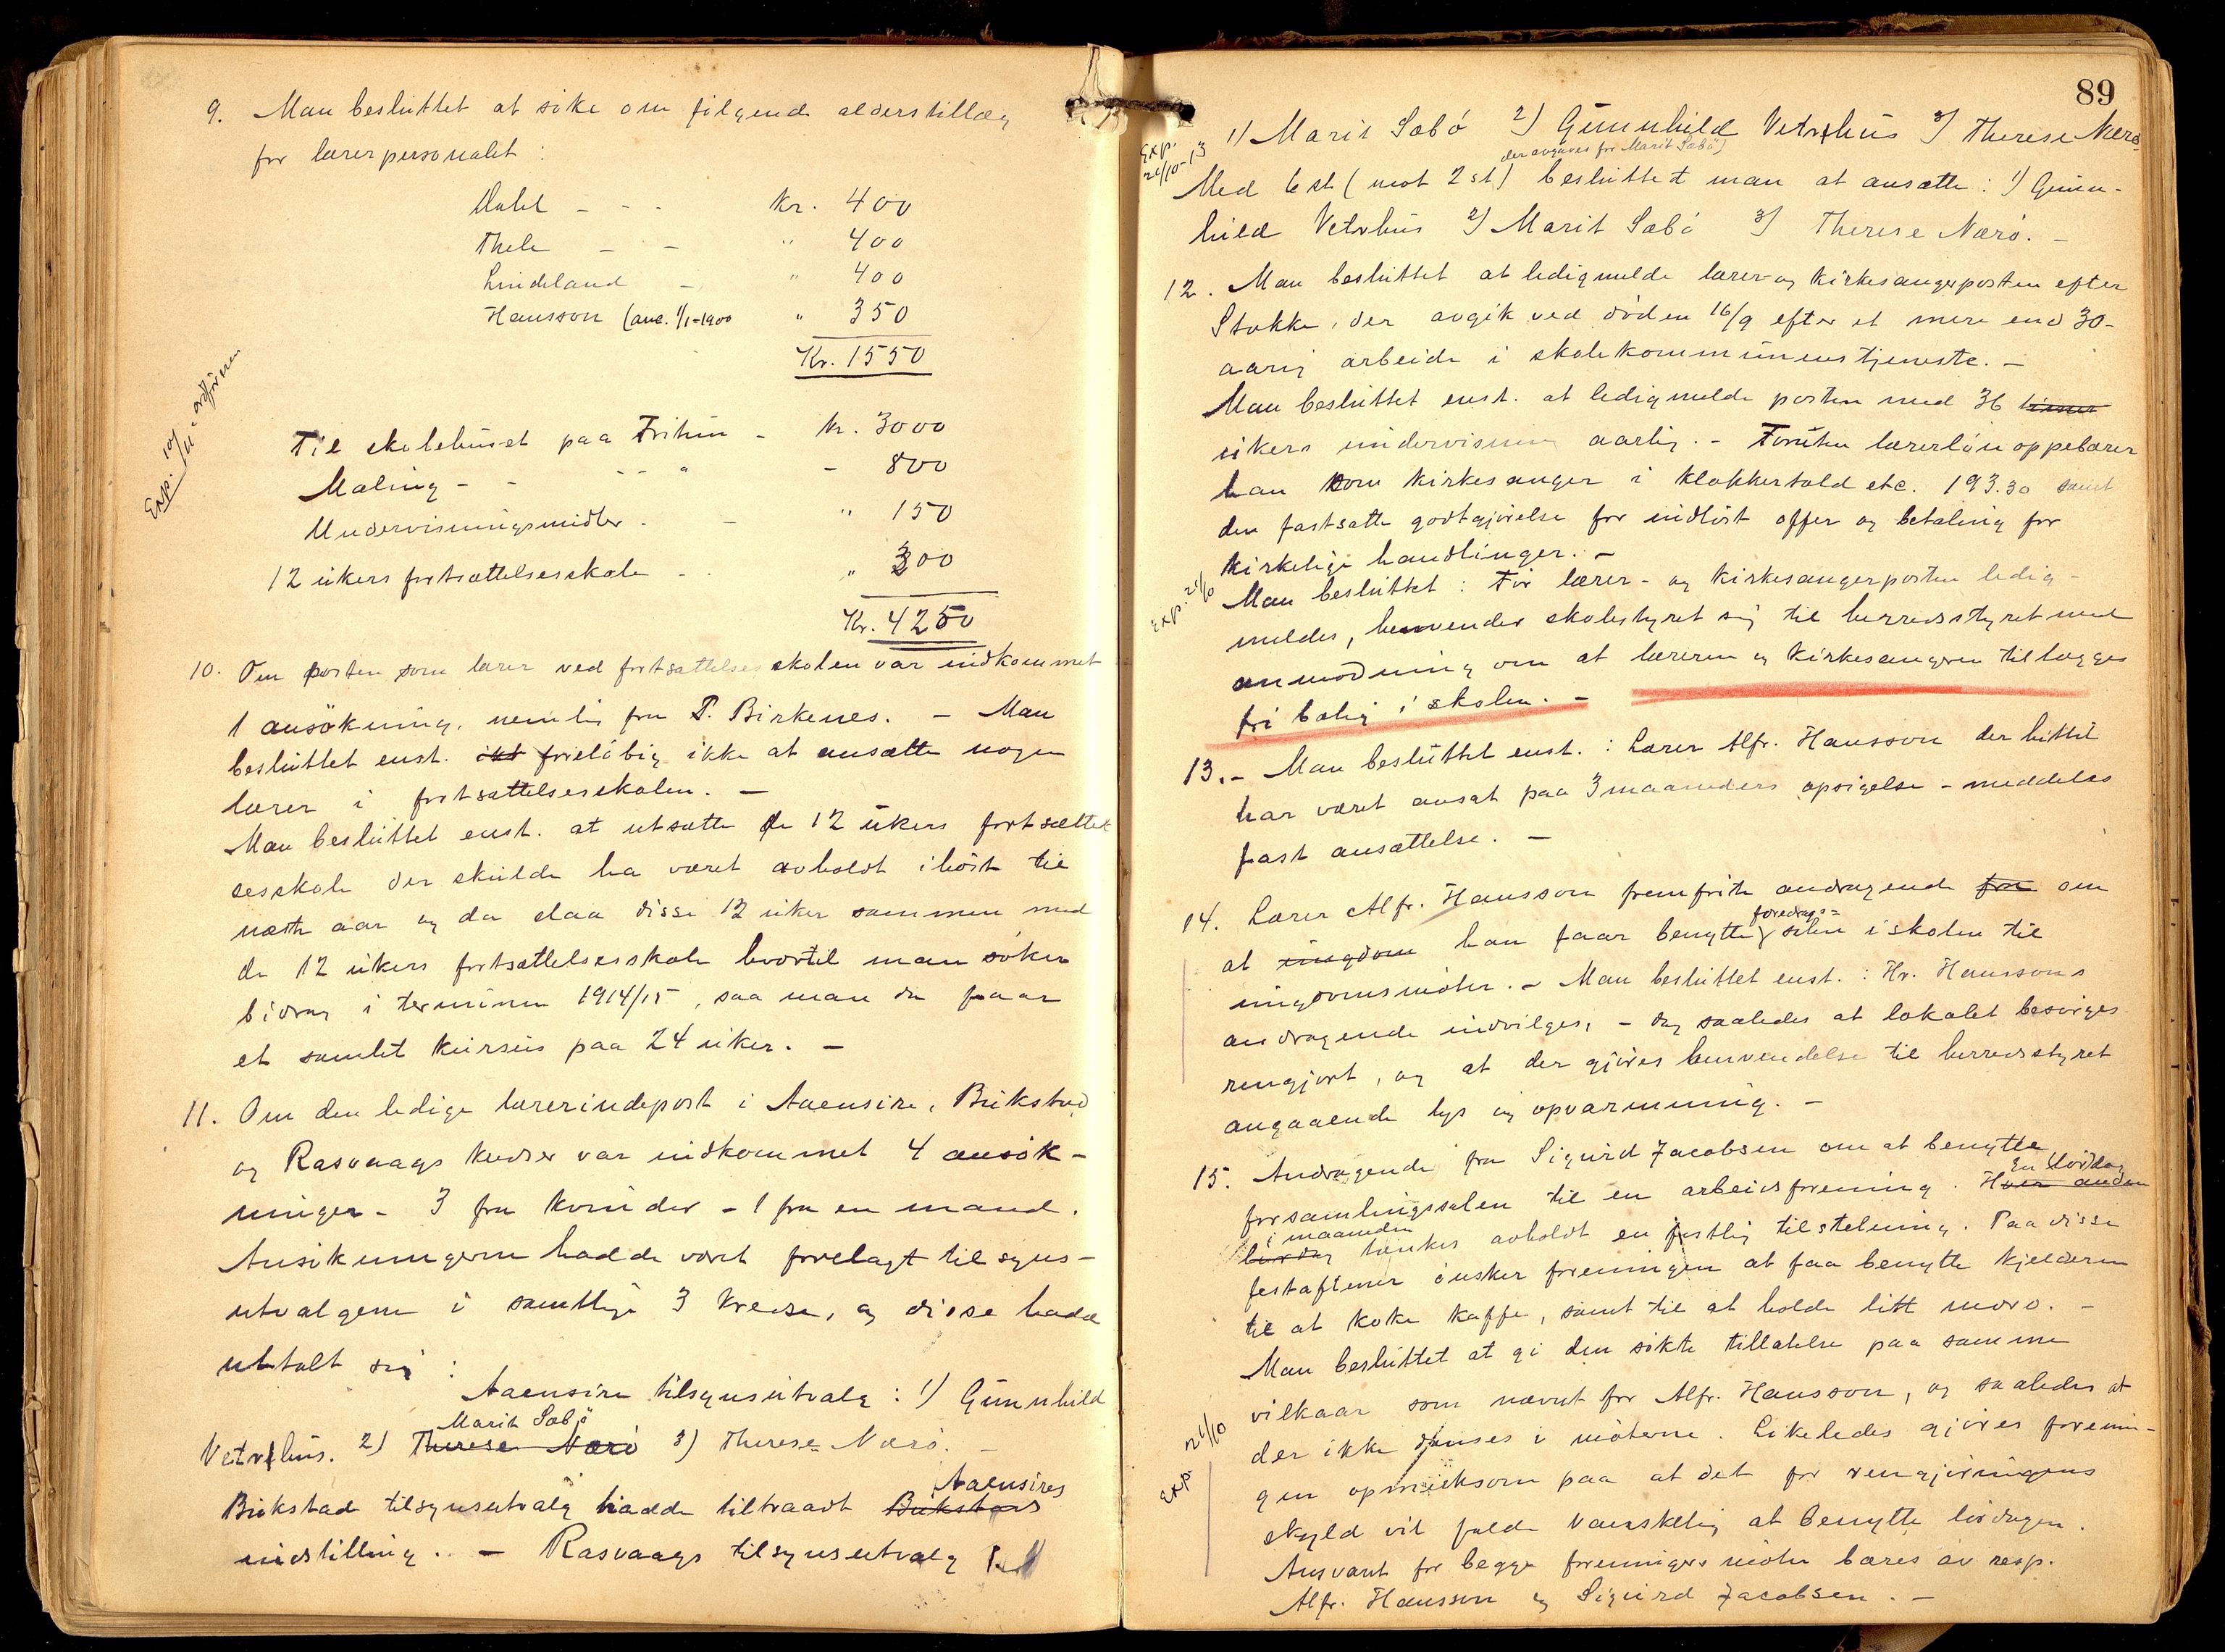 9. Man besluttet at søke om følgende alderstillæg
for lærerpersonalet:
Dahl - - - Kr. 400
Thele - - " 400
Lindeland - " 400
Hansson (anc. 1/1-1900 " 350
Kr. 1550
Exp. 10/11 - ordføreren
Til skolehuset paa Fritun - Kr. 3000
Maling - - - - " - 800
Undervisningsmidler - - " 150
12 ukers fortsættelsesskole - " 300
Kr. 4250
10. Om posten som lærer ved fortsættelsesskolen var indkommet
1 ansökning, nemlig fra P. Birkenes. - Man
besluttet enst. ikt foreløbig ikke at ansætte nogen
lærer i fortsættelsesskolen. -
Man besluttet enst. at utsætte de 12 ukers fortsættel
sesskole der skulde ha været avholdt ihöst til
næste aar og da slaa disse 12 uker sammen med
de 12 ukers fortsættelsesskole hvortil man søker
bidrag i terminen 1914/15, saa man da faar
et samlet kursus paa 24 uker. -
11. Om den ledige lærerindepost i Aaensire, Bukstad
og Rasvaags kredser var indkommet 4 ansök-
ninger - 3 fra kvinder - 1 fra en mand.
Ansökningerne hadde været forelagt tilsyns-
utvalgene i samtlige 3 kredse, og disse hadde
uttalt sig:
Aaensire tilsynsutvalg: 1) Gunnhild
Marit Sæbö
Vetrhus. 2) Therese Nærö 3) Therese Nærö. -
Aaensires
Bukstad tilsynsutvalg hadde tiltraadt Bukstads
indstilling. - Rasvaags tilsynsutvalg
89
Exp. 21/10-13
1) Marit Sæbö 2) Gunnhild Vetrhus 3) Therese Nærö
der avgaves for Marit Sæbö)
Med 6 st (mot 2 st) besluttet man at ansætte: 1) Gunn-
hild Vetrhus 2) Marit Sæbö 3) Therese Nærö. -
12. Man besluttet at ledigmelde lærer og kirkesangerposten efter
Stokke, der avgik ved döden 16/9 efter et mere end 30-
aarig arbeide i skolekommunens tjeneste. -
Man besluttet enst. at ledigmelde posten med 36 timer
ukers undervisning aarlig. - Foruten lærerlön oppebærer
han som kirkesanger i klokkertold etc. 193.30 samt
den fastsatte godtgjørelse for indløst offer og betaling for
kirkelige handlinger. -
Exp. 21/10
Man besluttet: Før lærer- og kirkesangerposten ledig-
meldes, henvender skolestyret sig til herredsstyret med
anmodning om at læreren og kirkesangeren tillægges
fri bolig i skolen. -
13. - Man besluttet enst.: Lærer Alfr. Hansson der hittil
har været ansat paa 3 maaneders opsigelse - meddeles
fast ansættelse. -
14. Lærer Alfr. Hansson fremførte andragende fra om
foredrags=
at ungdom han faar benytte salen i skolen til
ungdomsmøter. - Man besluttet enst.: Hr. Hanssons
andragende indvilges, - dog saaledes at lokalet besørges
rengjort, og at der gjøres henvendelse til herredsstyret
angaaende lys og opvarmning. -
15. Andragende fra Sigurd Jacobsen om at benytte
En lördag
forsamlingssalen til en arbeidsforening. Hver anden
i maaneden
lørdag tænkes avholdt en festlig tilstelning. Paa disse
festaftener ønsker foreningen at faa benytte kjelderen
til at koke kaffe, samt til at holde litt moro. -
Man besluttet at gi den søkte tillatelse paa samme
Exp. 21/10
vilkaar som nævnt for Alfr. Hansson, og saaledes at
der ikke danses i møterne. Likeledes gjøres forenin-
gen opmerksom paa at det for rengjøringens
skyld vil falde vanskelig at benytte lørdagen.
Ansvaret for begge foreningers møter bæres av resp.
Alfr. Hansson og Sigurd Jacobsen. -